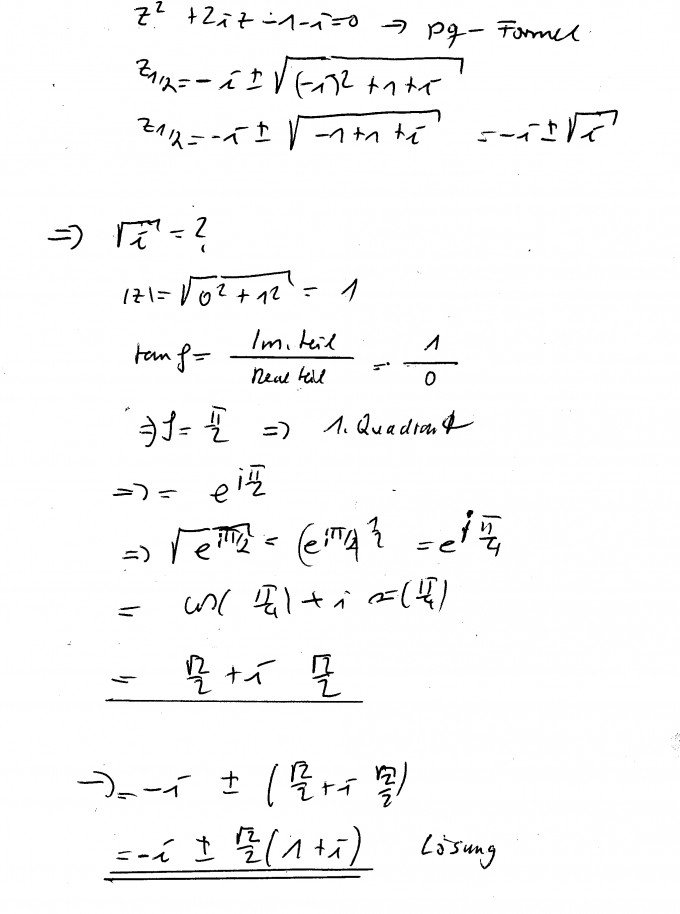 z² + 2iz - 1 - i = 0 → pq-Formel
z₁/₂ = -i ± √((-i)² + 1 + i)
z₁/₂ = -i ± √(-1 + 1 + i) = -i ± √i
⇒ √i = ?
|z| = √(0² + 1²) = 1
tan φ = Im.teil / Realteil = 1 / 0
⇒ φ = π/2 ⇒ 1. Quadrant
⇒ = e^(iπ/2)
⇒ √(e^(iπ/2)) = (e^(iπ/2))^(1/2) = e^(i π/4)
= cos(π/4) + i sin(π/4)
= √2/2 + i √2/2
→ = -i ± (√2/2 + i √2/2)
= -i ± √2/2 (1 + i) Lösung